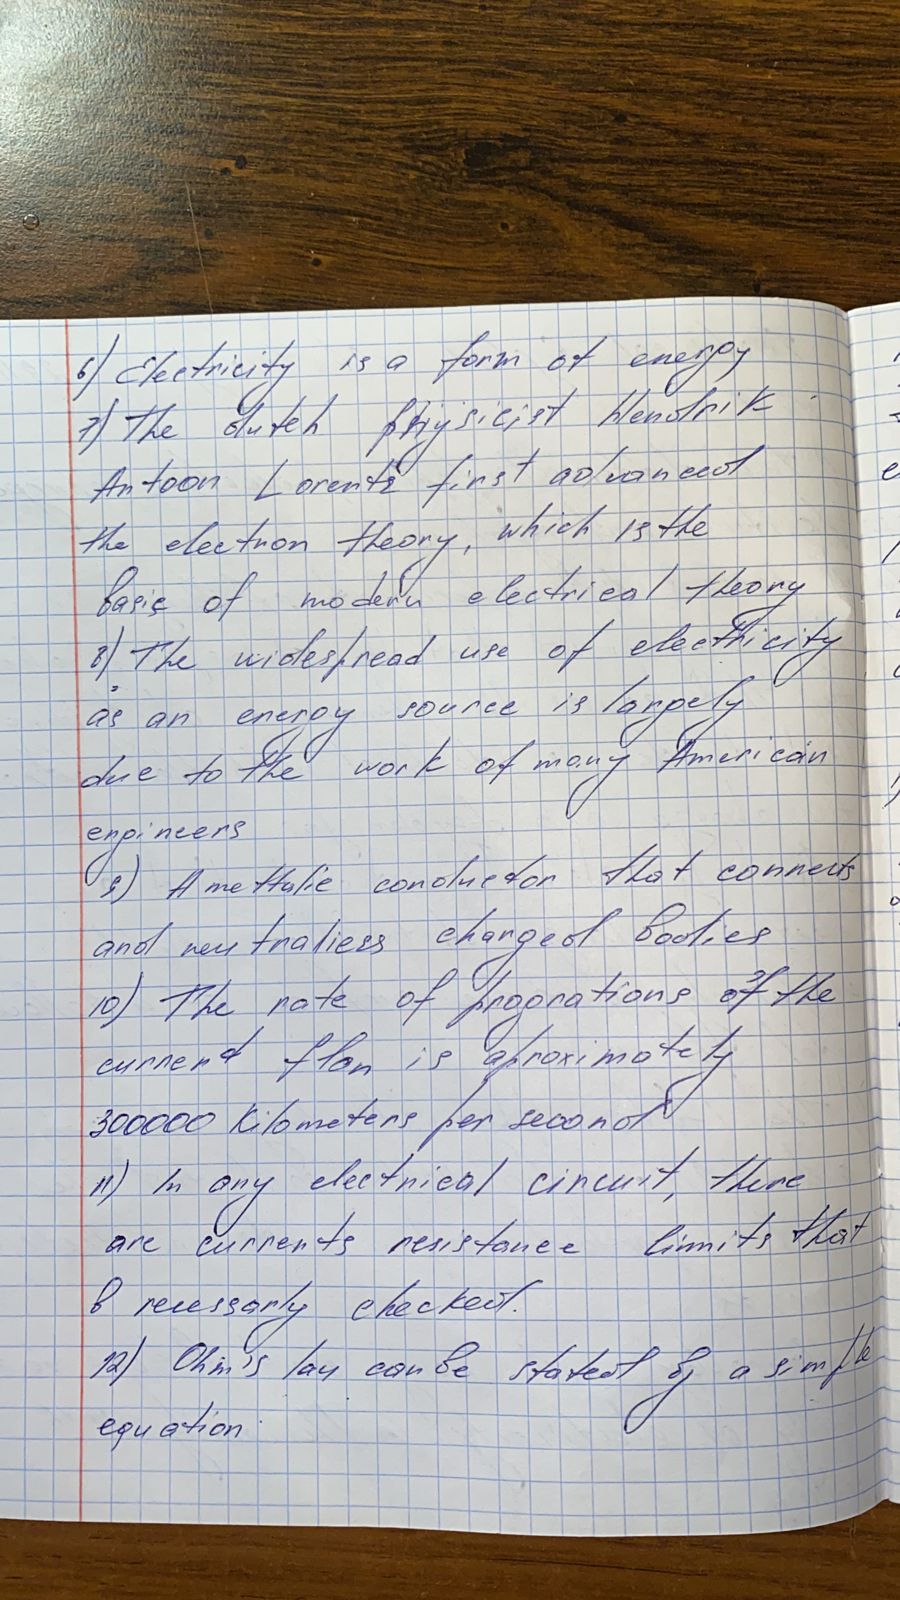 6) Electricity is a form of energy
7) The dutch physicist Hendrik
Antoon Lorentz first advanced
the electron theory, which is the
basis of modern electrical theory
8) The widespread use of electricity
as an energy source is largely
due to the work of many American
engineers
9) A mettalic conductor that connects
and neutraliess charged bodies
10) The rate of of the
current flon is aproximately
300000 Kilometers per second
11) In any electrical circuit, there
are currents resistance limits that
checked.
12) Ohm's law can be stated by a simple
equation